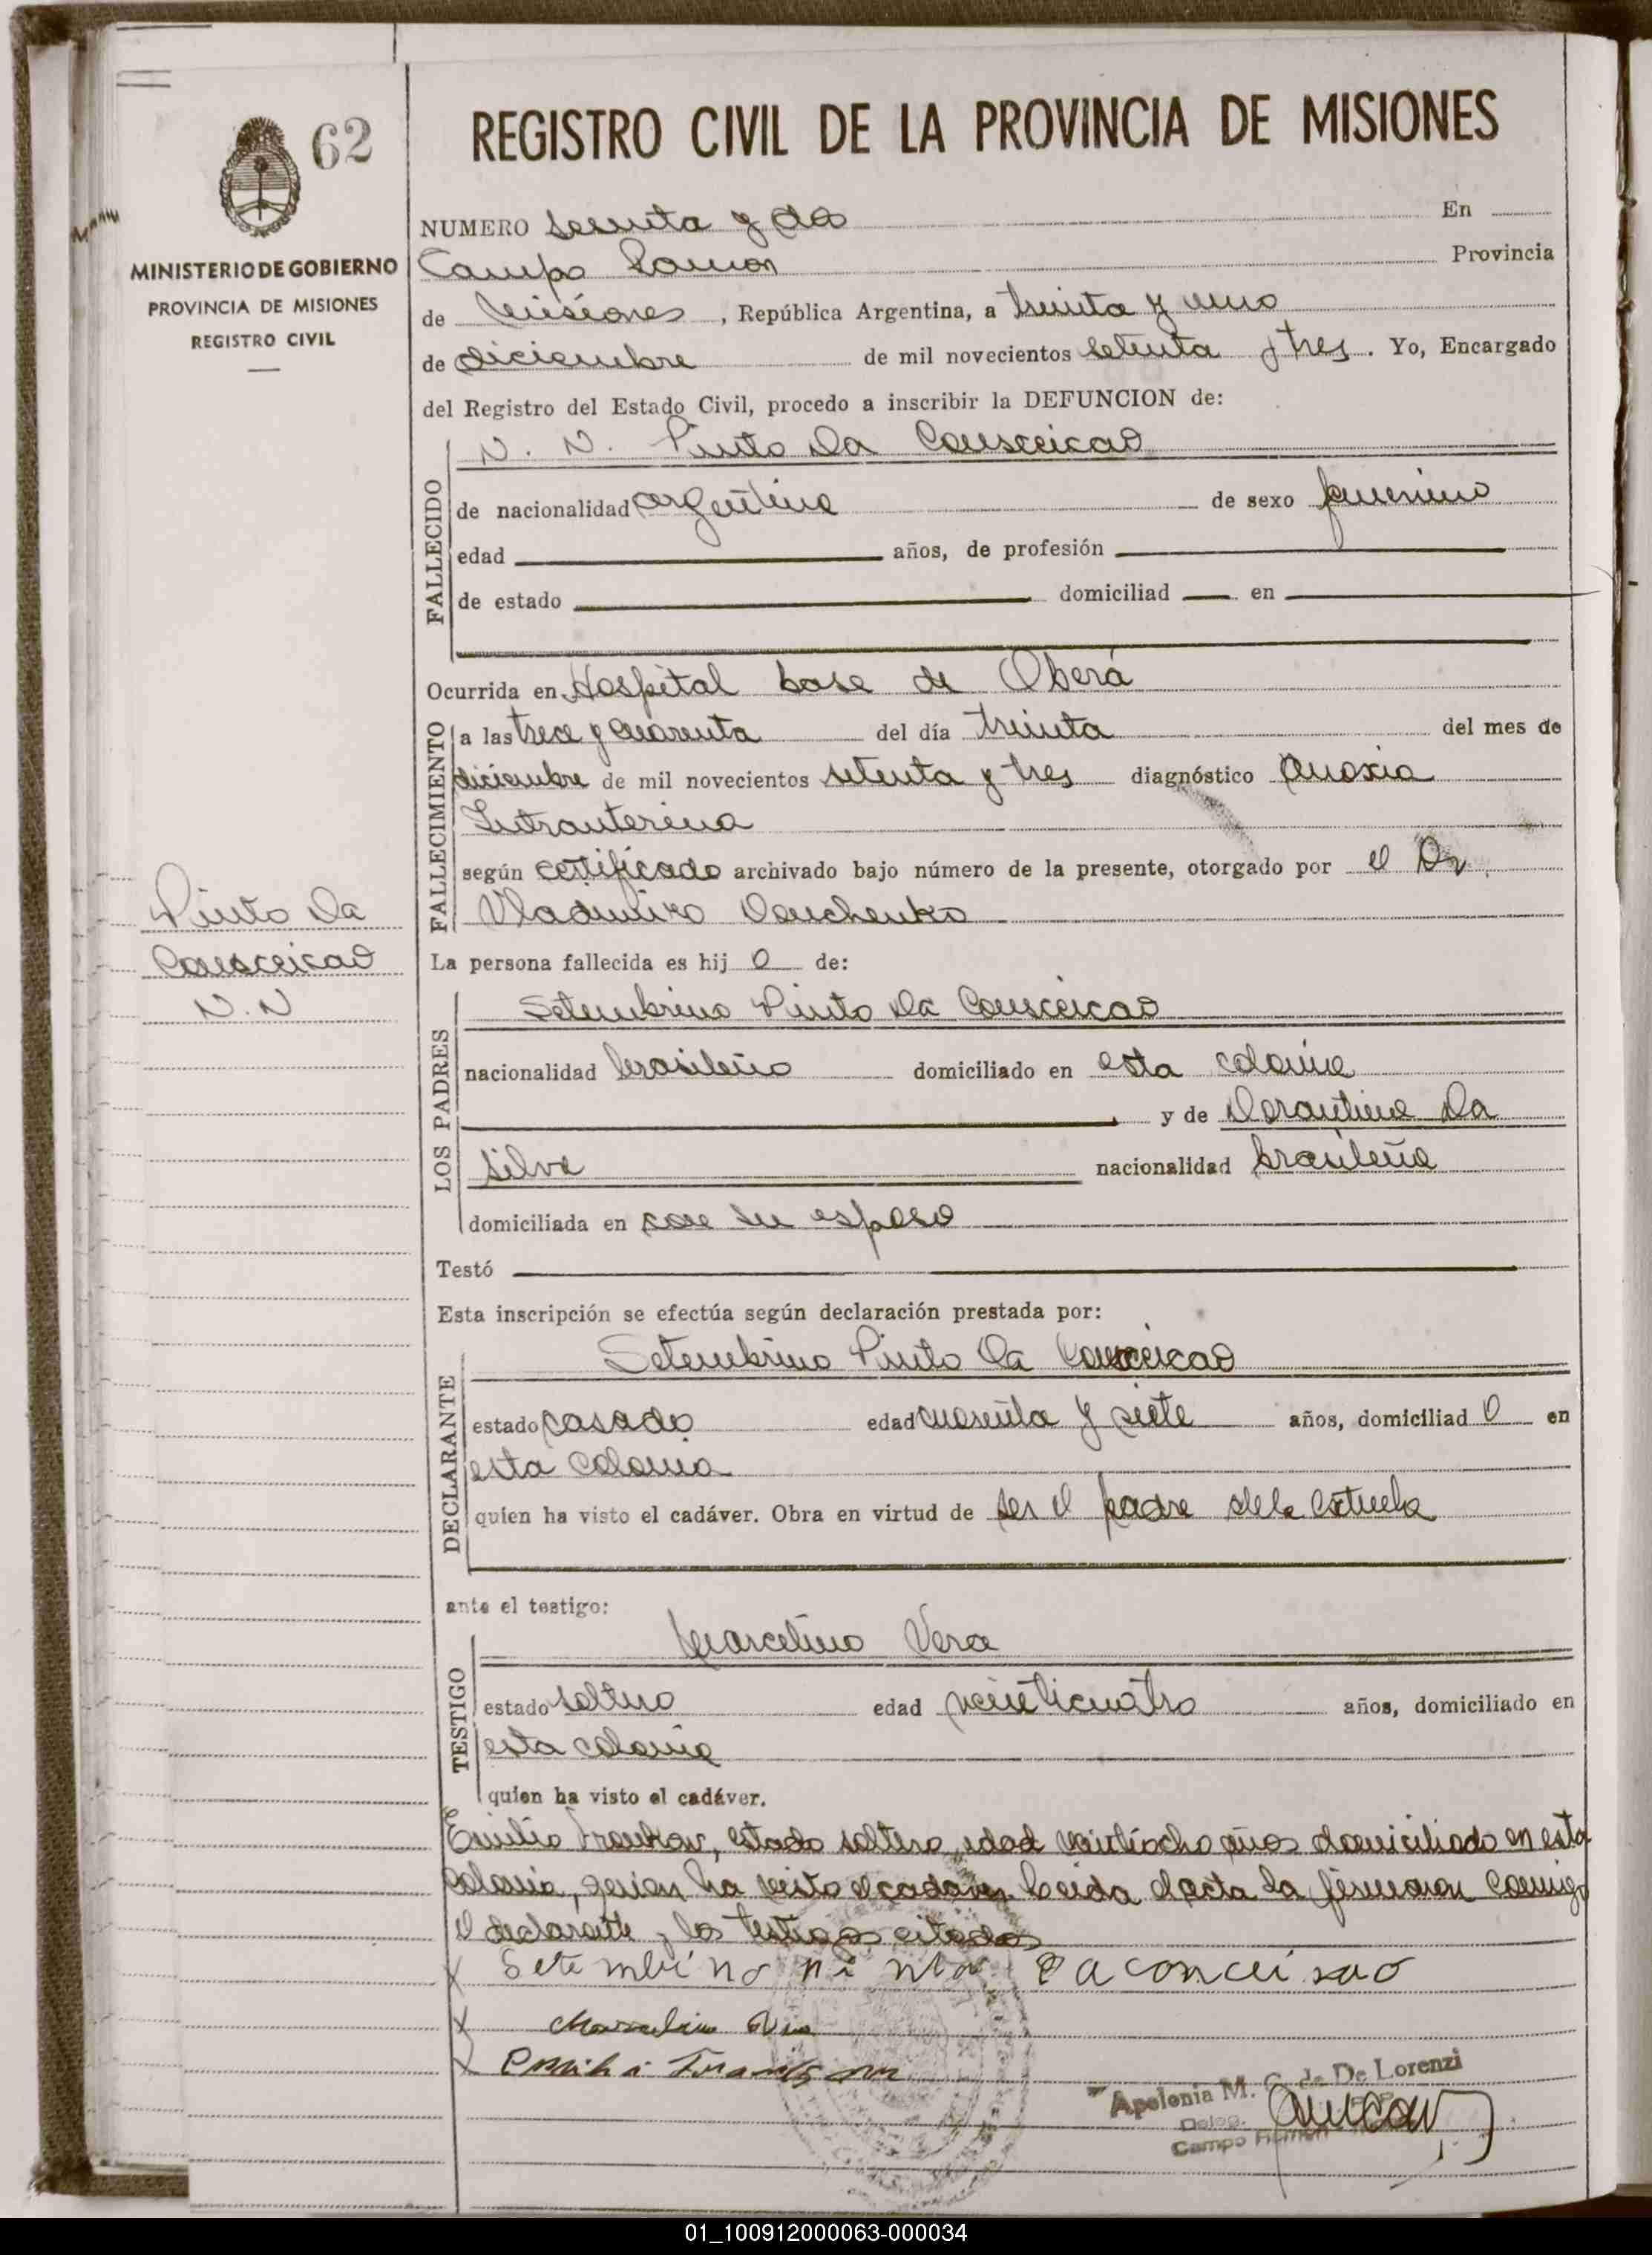 62
REGISTRO CIVIL DE LA PROVINCIA DE MISIONES
MINISTERIO DE GOBIERNO
PROVINCIA DE MISIONES
REGISTRO CIVIL
NUMERO sesenta y dos En
Campo Ramon Provincia
de Misiones, República Argentina, a treinta y uno
de diciembre de mil novecientos setenta y tres. Yo, Encargado
del Registro del Estado Civil, procedo a inscribir la DEFUNCION de:
N. N. Pinto Da Consceicao
FALLECIDO
de nacionalidad argentina de sexo femenino
edad años, de profesión
de estado domiciliad en
Ocurrida en Hospital base de Oberá
FALLECIMIENTO
a las trece y cuarenta del día treinta del mes de
diciembre de mil novecientos setenta y tres diagnóstico Anoxia
Intrauterina
según certificado archivado bajo número de la presente, otorgado por el Dr.
Vladimiro
Pinto Da
Consceicao
N. N
La persona fallecida es hij o de:
LOS PADRES
Setembrino Pinto Da Consceicao
nacionalidad brasileño domiciliado en esta colonia
y de Da
Silva nacionalidad brasileña
domiciliada en con su esposo
Testó
Esta inscripción se efectúa según declaración prestada por:
DECLARANTE
Setembrino Pinto Da Consceicao
estado casado edad cuarenta y siete años, domiciliad o en
esta colonia
quien ha visto el cadáver. Obra en virtud de ser el padre de la extinta
ante el testigo:
TESTIGO
Marcelino Vera
estado soltero edad veinticuatro años, domiciliado en
esta colonia
quien ha visto el cadáver.
Emilio Frankow, estado soltero, edad veintiocho años domiciliado en esta
colonia, quien ha visto el cadaver. Leida el acta la firmaron conmigo
el declarante y los testigos citados
x Setembino pinto Da conceisao
x Marcelino Vera
x Emilio
Apolonia M. C. de De Lorenzi
Deleg.
Campo Ramon
01_100912000063-000034